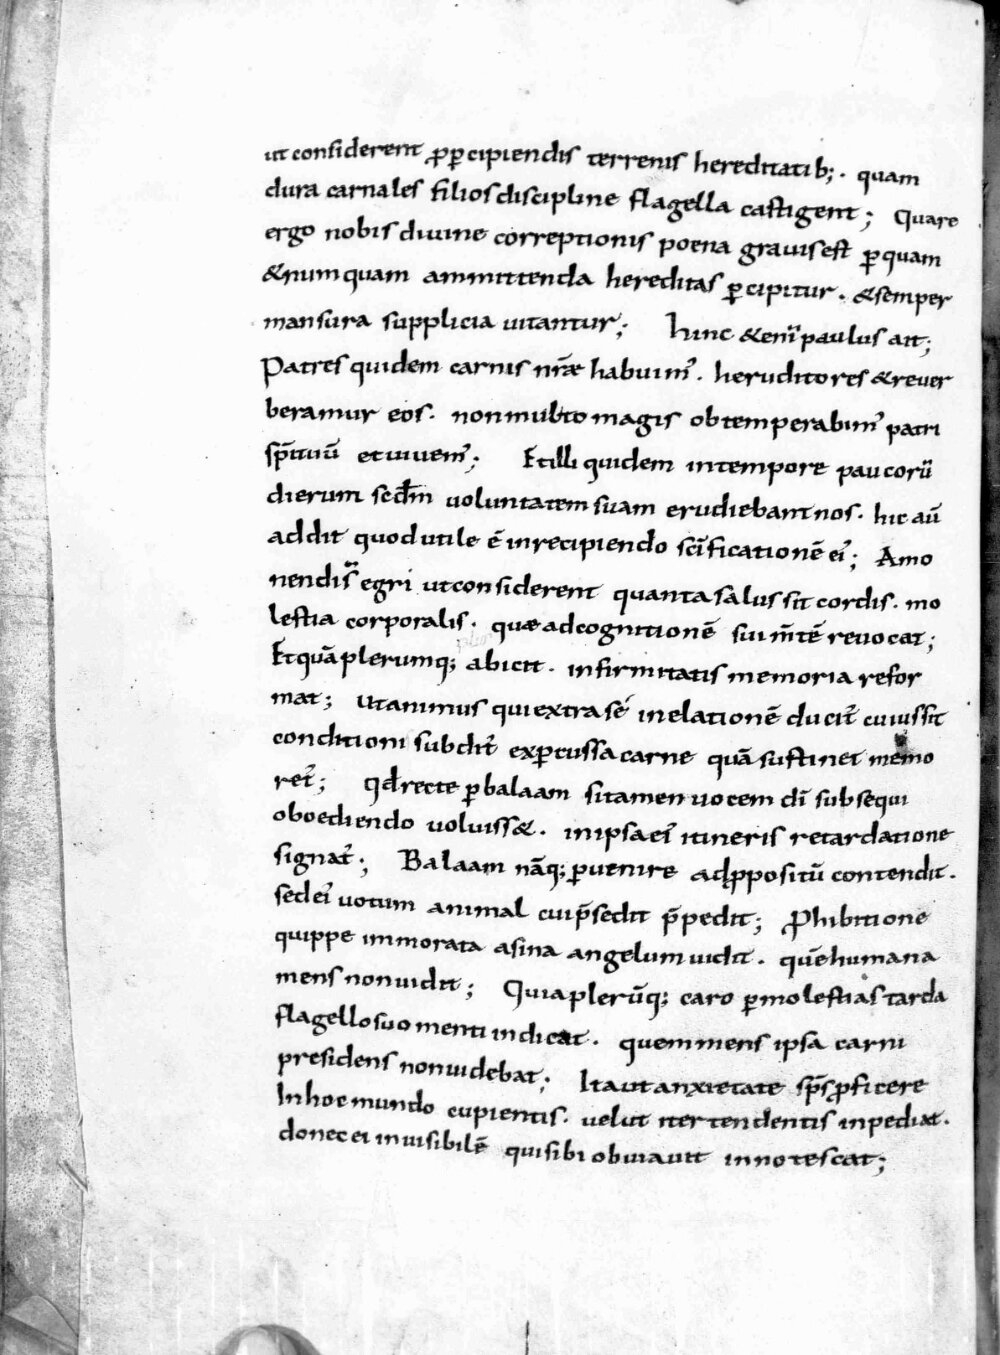 ut considerent ꝓꝑcipiendis terrenis hereditatib;· quam
dura carnales filios discipline flagella castigent; Quare
ergo nobis divine correptionis poena gravis est ꝑ quam
& nunquam ammittenda hereditas ꝑcipitur· & semper
mansura supplicia vitantur; Hinc & eni̅ paulus ait;
Patres quidem carnis nr̅ae habuim᾽· heruditores & rever
beramur eos· non multo magis obtemperabim᾽ patri
sp̅ituu̅ et vivem᾽; Et illi quidem in tempore paucoru̅
dierum secd̅m voluntatem suam erudiebant nos· hic au̅
addit quod utile e̅ in recipiendo sc̅ificatione̅ ei᾽; Amo
nendis̅ egri ut considerent quanta salus sit cordis· mo
lestia corporalis· quae ad cognitione̅ sui m̅te̅ revocat;
Et qua̅ plerumq; abicit· infirmitatis memoria refor
mat; Ut animus qui extra se in elatione̅ ducit᾽ cuius sit
conditioni subdit᾽ exꝑcussa carne qua̅ sustinet memo
ret᾽; Qd̅ recte ꝑ balaam si tamen vocem di̅ subsequi
oboediendo voluiss&· in ipsa ei᾽ itineris retardatione
signat᾽; Balaam na̅q; ꝑvenire ad ꝓpositu̅ contendit·
sed ei᾽ votum animal cui p̅sedit p̅pedit; Ꝓhibitione
quippe inmorata asina angelum vidit· que̅ humana
mens non vidit; Quia pleru̅q; caro ꝑ molestias tarda
flagello suo menti indicat· quem mens ipsa carni
presidens non videbat; Ita ut anxietate sp̅s ꝓficere
In hoc mundo cupientis· velut iter tendentis inpediat·
donec ei invisibile̅ qui sibi obviavit innotescat;